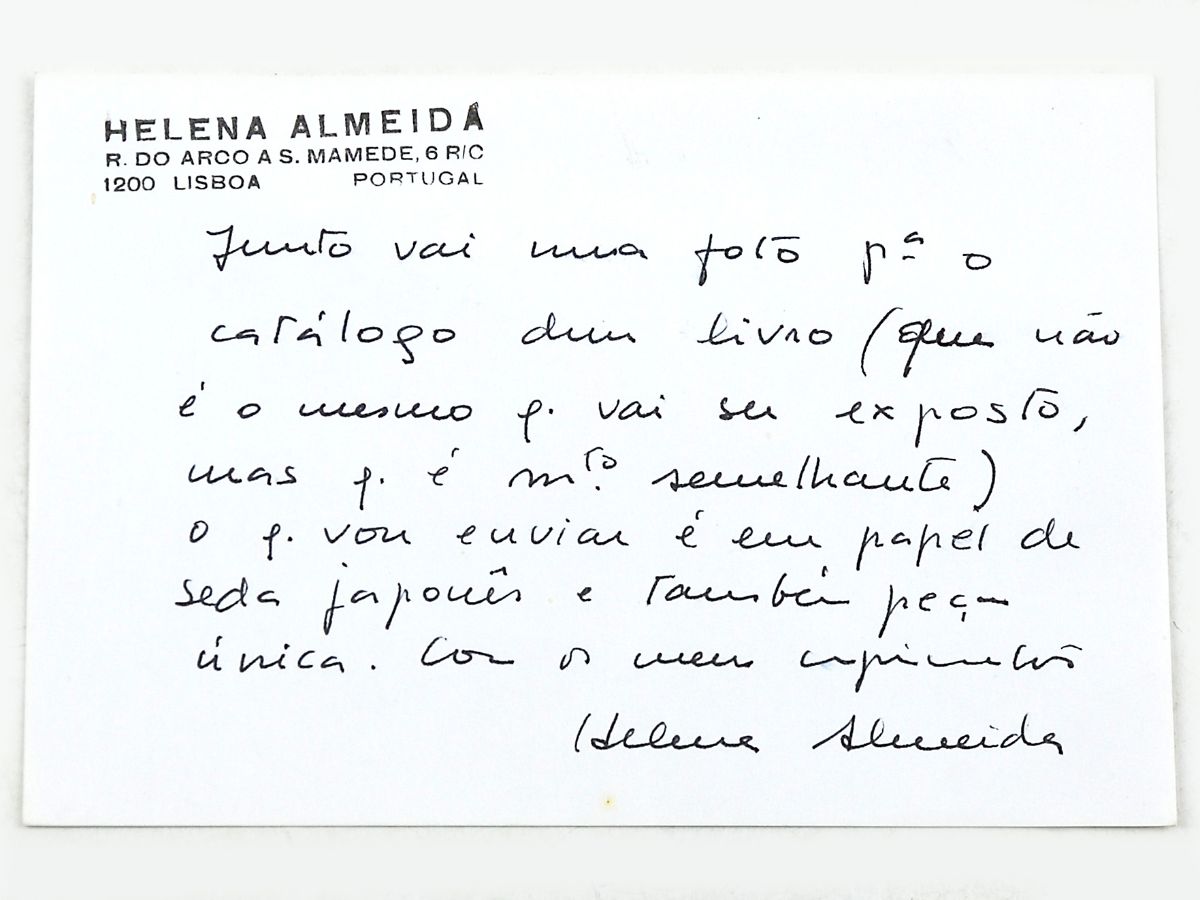 HELENA ALMEIDA
R. DO ARCO A S. MAMEDE, 6 R/C
1200 LISBOA PORTUGAL
Junto vai uma foto pª o
catálogo dum livro (que não
é o mesmo q. vai ser exposto,
mas q. é mto. semelhante)
O q. vou enviar é em papel de
seda japonês e também peça
única. Com os meus cumprimentos
Helena Almeida